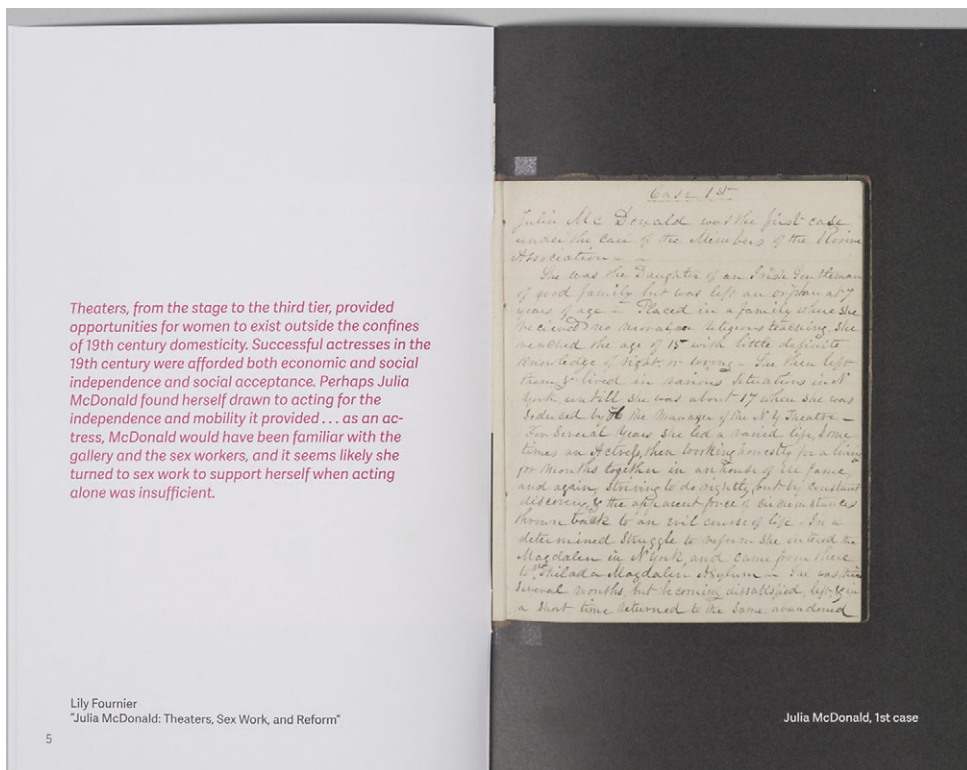 Theaters, from the stage to the third tier, provided
opportunities for women to exist outside the confines
of 19th century domesticity. Successful actresses in the
19th century were afforded both economic and social
independence and social acceptance. Perhaps Julia
McDonald found herself drawn to acting for the
independence and mobility it provided . . . as an ac-
tress, McDonald would have been familiar with the
gallery and the sex workers, and it seems likely she
turned to sex work to support herself when acting
alone was insufficient.
Lily Fournier
"Julia McDonald: Theaters, Sex Work, and Reform"
5
Case 1st
Julia Mc Donald was the first case
under the care of the Members of the Rosine
Association
She was the Daughter of an Irish Gentleman
of good family but was left an orphan at 7
years of age – Placed in a family where she
recieved no moral or religious teaching, she
reached the age of 15 with little definite
knowledge of right or wrong – She then left
them & lived in various situations in N
York, untill she was about 17 when she was
seduced by the Manager of the N Y Theatre –
For several years she led a varied life, some
times an Actress, then working honestly for a living
for months together in an house of ill fame,
and again, striving to do rightly, but by constant
discovery, & the apparent force of circumstances
thrown back to an evil course of life – In a
determined struggle to reform she intered the
Magdalen in N York, and came from there
to Philada Magdalen Asylum – She was
several months, but becoming dissatisfied, left & in
a short time returned to the same abandoned
Julia McDonald, 1st case